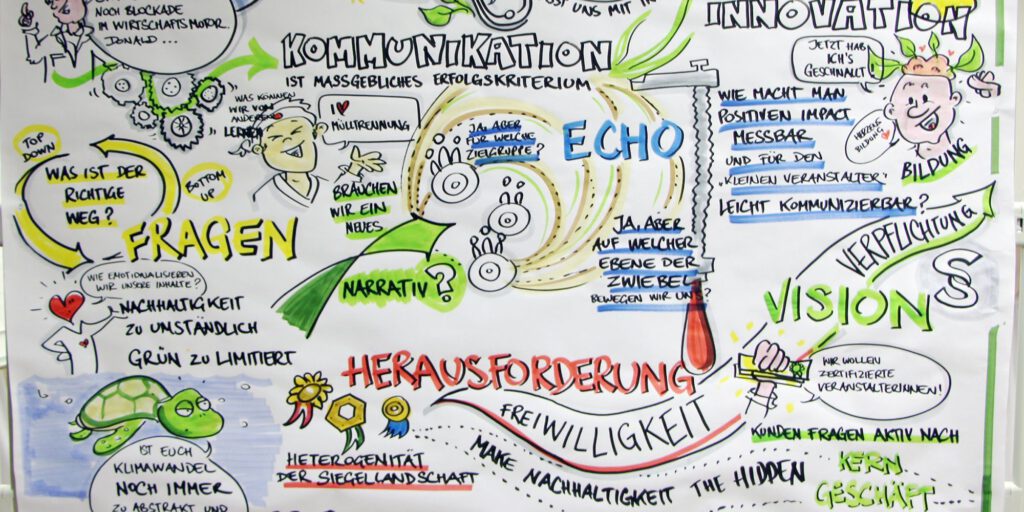 NOCH BLOCKADE
IM WIRTSCHAFTSMOTOR.
DONALD ...
KOMMUNIKATION
IST MASSGEBLICHES ERFOLGSKRITERIUM
IST UNS MIT
INNOVATION
JETZT HAB
ICH'S
GESCHNALLT!
WIE MACHT MAN
POSITIVEN IMPACT
MESSBAR
UND FÜR DEN
„KLEINEN VERANSTALTER"
LEICHT KOMMUNIZIERBAR?
HERZENS
BILDUNG
BILDUNG
WAS KÖNNEN
WIR VON
ANDEREN
LERNEN
I ♥
MÜLLTRENNUNG
JA, ABER
FÜR WELCHE
ZIELGRUPPE?
ECHO
TOP
DOWN
WAS IST DER
RICHTIGE
WEG?
BOTTOM
UP
FRAGEN
BRÄUCHEN
WIR EIN
NEUES
NARRATIV?
JA, ABER
AUF WELCHER
EBENE DER
ZWIEBEL
BEWEGEN WIR UNS?
VERPFLICHTUNG
§
VISION
WIE EMOTIONALISIEREN
WIR UNSERE INHALTE?
NACHHALTIGKEIT
ZU UMSTÄNDLICH
GRÜN ZU LIMITIERT
HERAUSFORDERUNG
FREIWILLIGKEIT
WIR WOLLEN
ZERTIFIZIERTE
VERANSTALTERINNEN!
KUNDEN FRAGEN AKTIV NACH
HETEROGENITÄT
DER SIEGELLANDSCHAFT
MAKE NACHHALTIGKEIT THE HIDDEN
KERN
GESCHÄFT
IST EUCH
KLIMAWANDEL
NOCH IMMER
ZU ABSTRAKT UND